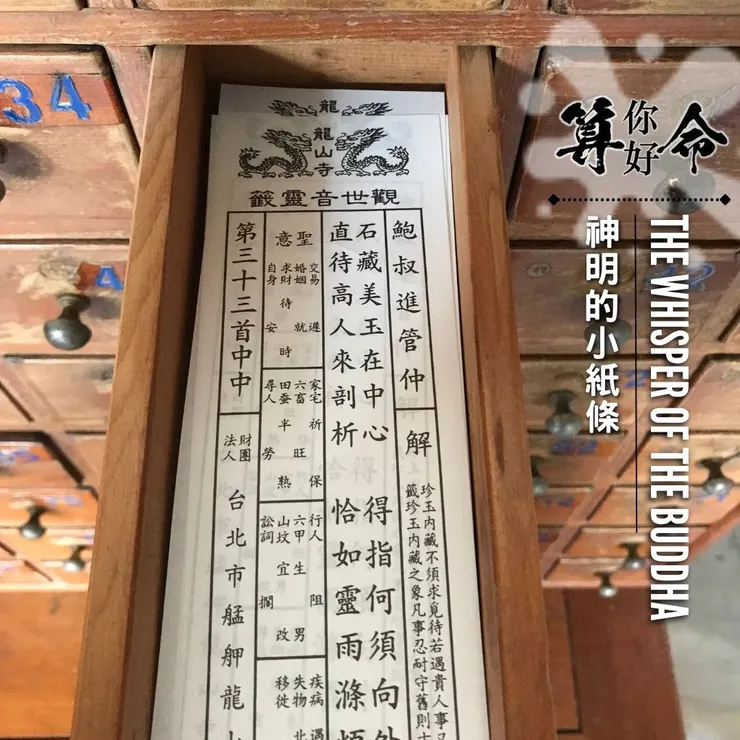 34
4
龍
龍山寺
觀世音靈籤
鮑叔進管仲
解
珍玉內藏不須求覓待若遇貴人事
籤珍玉內藏之象凡事忍耐守舊則
石藏美玉在中心 得指何須向外
直待高人來剖析 恰如靈雨滌煩
聖意
交易 遲
婚姻 就
求財 待時
自身 安
家宅 祈保
六畜 旺
田蚕 半熟
尋人 勞
行人 阻
六甲 生男
山墳 宜改
訟詞 擱
疾病 遇
失物 北
移徙
第三十三首中中
財團法人 台北市艋舺龍山
算命
你好
神明的小紙條
THE WHISPER OF THE BUDDHA